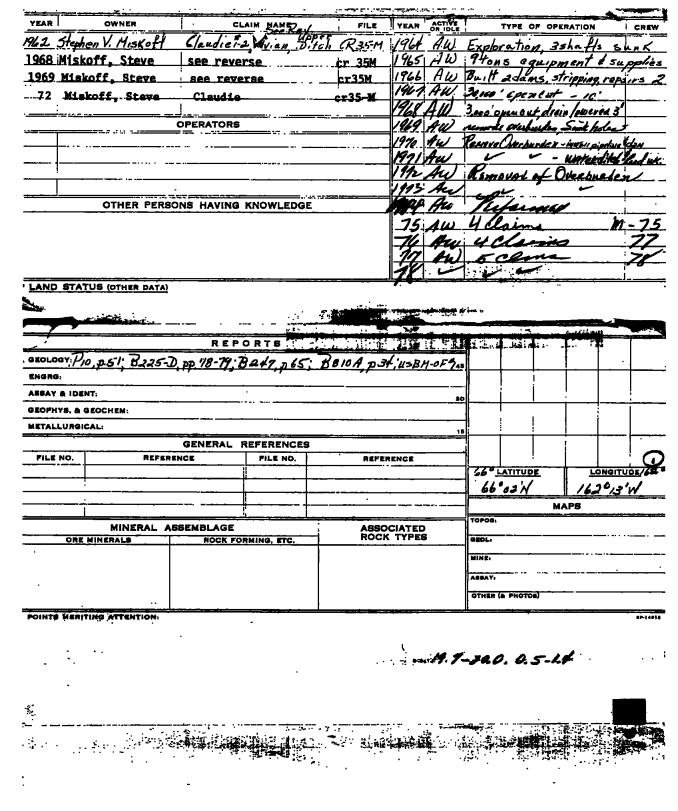 YEAR OWNER CLAIM NAME FILE YEAR ACTIVE OR IDLE TYPE OF OPERATION CREW
See Ray
1962 Stephen V. Miskoff Claudie 1-2, Vivian, Upper Ditch CR35-M 1964 AW Exploration, 3 shafts sunk
1968 Miskoff, Steve see reverse cr 35M 1965 AW 9 tons equipment & supplies
1969 Miskoff, Steve see reverse cr35M 1966 AW Built 2 dams, stripping, repairs 2
72 Miskoff, Steve Claudie cr35-M 1967 AW opencut - 10'
1968 AW 3,000' open cut drain lowered 3'
OPERATORS
1969 AW remove overburden, Sunk holes
1970 AW Remove Overburden -
1971 AW ✓ ✓ -
1972 AW Removal of Overburden
1973 AW ✓ ✓
OTHER PERSONS HAVING KNOWLEDGE
AW
75 AW 4 Claims M-75
76 AW 4 Claims 77
77 AW 5 Claims 78
78 ✓ ✓ ✓
LAND STATUS (OTHER DATA)
REPORTS
GEOLOGY: P10, p51; B225-D, pp 78-79; B247, p65; B810A, p34; USBM-OF
ENGRG:
ASSAY & IDENT:
20
GEOPHYS. & GEOCHEM:
METALLURGICAL:
15
GENERAL REFERENCES
FILE NO. REFERENCE FILE NO. REFERENCE
66° LATITUDE LONGITUDE
66°02'N 162°13'W
MAPS
MINERAL ASSEMBLAGE ASSOCIATED ROCK TYPES TOPOG:
ORE MINERALS ROCK FORMING, ETC. GEOL:
MINE:
ASSAY:
OTHER (& PHOTOS)
POINTS MERITING ATTENTION:
19.7-20.0. 0.5-1.4